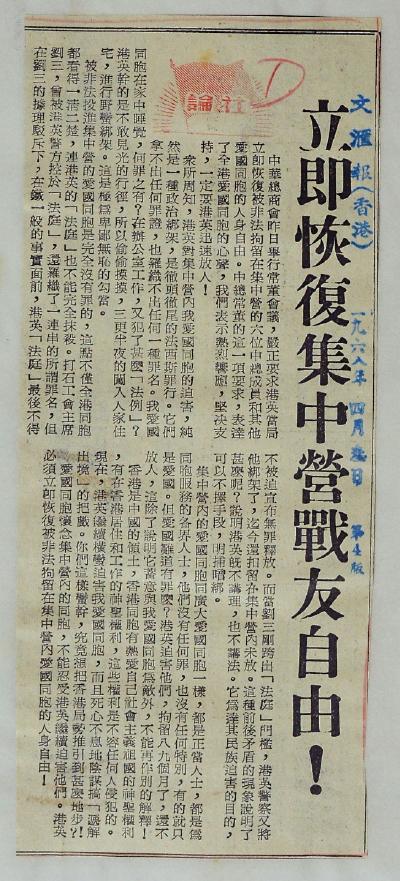 文滙報(香港)
一九六八年 四月 日 第4版
立即恢復集中營戰友自由！
社論
中華總商會昨日舉行常董會議，嚴正要求港英當局
立即恢復被非法拘留在集中營的六位中總成員和其他
愛國同胞的人身自由。中總常董的這一項要求，表達
了全港愛國同胞的心聲，我們表示熱烈響應，堅决支
持，一定要港英迅速放人！
衆所周知，港英對集中營內我愛國同胞的迫害，純
然是一種政治綁架，是徹頭徹尾的法西斯罪行。它們
拿不出任何罪證，也羅織不出任何一種罪名。我愛國
同胞在家中睡覺，何罪之有？在辦公室工作，又犯了甚麽「法例」？
港英幹的是不敢見光的行徑，所以偷偷摸摸，三更半夜的闖入人家住
宅，進行野蠻綁架。這是極爲卑鄙無恥的勾當。
被非法投進集中營的愛國同胞是完全沒有罪的，這點不僅全港同胞
都看得一清二楚，連港英的「法庭」也不能完全抹殺。打石工會主席
劉三，曾被港英警方控於「法庭」，還羅織了一連串的所謂罪名，但
在劉三的據理駁斥下，在鐵一般的事實面前，港英「法庭」最後不得
不被迫宣布無罪釋放。而當劉三剛跨出「法庭」門檻，港英警察又將
他綁架了，迄今還扣留在集中營內未放。這種前後矛盾的現象說明了
甚麽呢？說明港英旣不講理，也不講法。它爲達其民族迫害的目的，
可以不擇手段，明捕暗綁。
集中營內的愛國同胞同廣大愛國同胞一樣，都是正當人士，都是爲
同胞服務的各界人士，他們沒有任何罪，也沒有任何特別，有的就只
是愛國。但愛國難道有罪麽？港英迫害他們，拘留八九個月了，還不
放人，這除了說明它蓄意與我愛國同胞爲敵外，不能再作別的解釋！
香港是中國的領土，香港同胞有熱愛自己社會主義祖國的神聖權利
，有在香港居住和工作的神聖權利，這些權利是不容任何人侵犯的。
現在，港英繼續橫蠻迫害我愛國同胞，而且死心不息地陰謀搞「遞解
出境」的把戲。你們這樣蠻幹，究竟想把香港局勢推引到甚麽地步？！
愛國同胞懷念集中營內的同胞，不能忍受港英繼續迫害他們。港英
必須立即恢復被非法拘留在集中營內愛國同胞的人身自由！